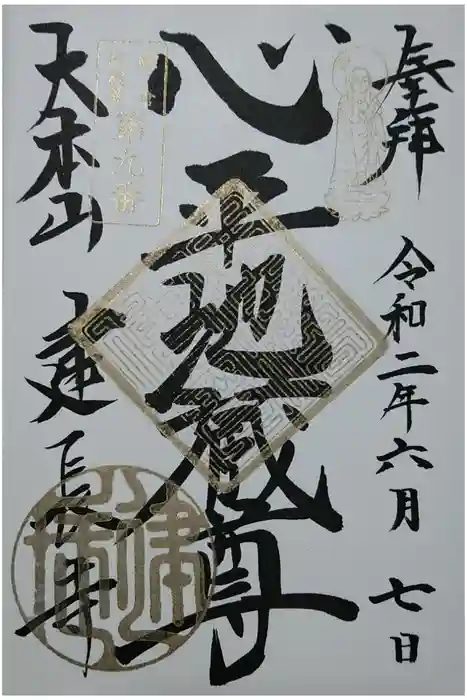 奉拝
令和二年六月 七日
心平地蔵尊
第九番
大本山 建長寺